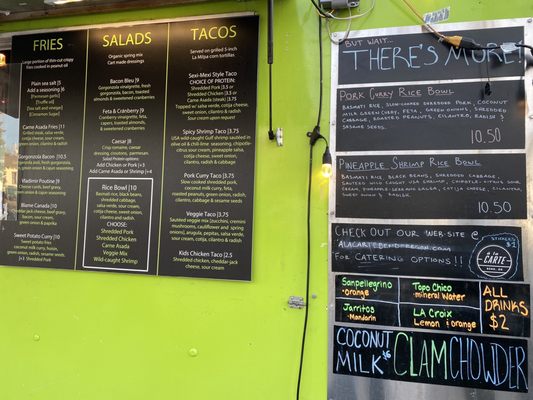 FRIES
Large portion of thin-cut crispy
fries cooked in peanut oil
Plain sea salt |5
Add a seasoning |6
[Parmesan garlic]
[Truffle oil]
[Sea salt and vinegar]
[Cinnamon Sugar]
Carne Asada Fries |11
Gorgonzola Bacon |10.5
Vladimir Poutine |9
Blame Canada |10
Sweet Potato Curry |9
Sweet potato fries
|+3 Shredded Pork
SALADS
Organic spring mix
Cart made dressings
Bacon Bleu |9
Gorgonzola vinaigrette, fresh
gorgonzola, bacon, toasted
almonds & sweetened cranberries
Feta & Cranberry |9
Cranberry vinaigrette, feta,
capers, toasted almonds,
& sweetened cranberries
Caesar |8
Crisp romaine, caesar
dressing, croutons, parmesan.
Salad Protein options:
Add Chicken or Pork |+3
Add Carne Asada or Shrimp |+4
Rice Bowl |10
Basmati rice, black beans,
shredded cabbage,
salsa verde, cotija
cheese, sweet onion,
cilantro and radish
CHOOSE:
Shredded Pork
Shredded Chicken
Carne Asada
Veggie Mix
Wild-caught Shrimp
TACOS
Served on grilled 5-inch
La Milpa corn tortillas.
Sexi-Mexi Style Taco
CHOICE OF PROTEIN:
Shredded Pork |3.5 or
Shredded Chicken |3.5 or
Carne Asada (steak) |3.75
Topped w/ salsa verde, cotija cheese,
sweet onion, cilantro & radish
Spicy Shrimp Taco |3.75
USA wild-caught Gulf shrimp sautéed in
olive oil & chili-lime seasoning, chipotle-
citrus sour cream, pineapple salsa,
cotija cheese, sweet onion,
cilantro, radish & cabbage
Pork Curry Taco |3.75
Slow cooked shredded pork,
coconut milk curry, feta,
roasted peanuts, green onion,
cilantro, cabbage & sesame seeds
Veggie Taco |3.75
Sauteed veggie mix (zucchini, cremini
mushrooms, cauliflower and spring
onions), arugula, pepitas, salsa verde,
sour cream, cotija, cilantro & radish
Kids Chicken Taco |2.5
Shredded chicken, cheddar-jack
cheese, sour cream
But wait...
THERE'S MORE!
Pork Curry Rice Bowl
Basmati rice, slow-cooked shredded pork, coconut
milk green curry, feta, green onions, shredded
cabbage, roasted peanuts, cilantro, radish &
sesame seeds.
10.50
Pineapple Shrimp Rice Bowl
Basmati rice, black beans, shredded cabbage,
sautéed wild caught USA shrimp, chipotle-citrus sour
cream, pineapple serrano salsa, cotija cheese, cilantro,
sweet onion & radish.
10.50
STICKERS
$1
CHECK OUT OUR WEB-SITE @
ALACARTEBENDOREGON.COM
FOR CATERING OPTIONS!!
À LA
CARTE
BEND, OR
Sanpellegrino
-orange
Topo Chico
-mineral Water
Jarritos
-Mandarin
LA Croix
Lemon & orange
ALL
DRINKS
$2
COCONUT
MILK $6 CLAM CHOWDER